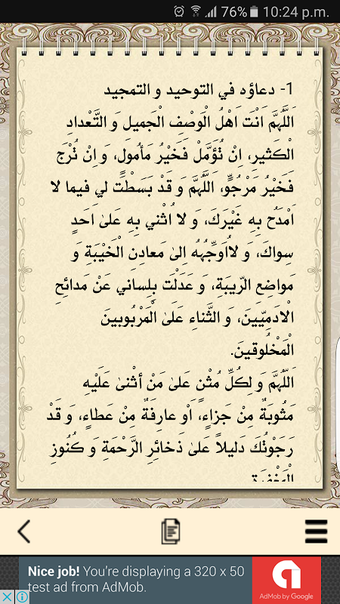 76% 10:24 p.m.
1- دعاؤه في التوحيد و التمجيد
اَللّهُمَّ اَنْتَ اَهْلُ الْوَصْفِ الْجَميلِ وَ التَّعْدادِ
الْكَثيرِ، اِنْ تُؤَمَّلْ فَخَيْرُ مَأْمولٍ، وَ اِنْ تُرْجَ
فَخَيْرُ مَرْجُوٍّ، اَللّهُمَّ وَ قَدْ بَسَطْتَ لي فيما لا
اَمْدَحُ بِهِ غَيْرَكَ، وَ لا اُثْني بِهِ عَلى اَحَدٍ
سِواكَ، وَ لااُوَجِّهُهُ اِلى مَعادِنِ الْخَيْبَةِ وَ
مَواضِعِ الرّيبَةِ، وَ عَدَلْتَ بِلِساني عَنْ مَدائِحِ
الْادَمِيّينَ، وَ الثَّناءِ عَلَى الْمَرْبُوبينَ
الْمَخْلُوقينَ.
اَللّهُمَّ وَ لِكُلِّ مُثْنٍ عَلى مَنْ اَثْنى عَلَيْهِ
مَثُوبَةٌ مِنْ جَزاءٍ، اَو عارِفَةٌ مِنْ عَطاءٍ، وَ قَدْ
رَجَوْتُكَ دَليلاً عَلى ذَخائِرِ الرَّحْمَةِ وَ كُنُوزِ
الْمَغْفِرَةِ
Nice job! You're displaying a 320 x 50
test ad from AdMob.
AdMob by Google